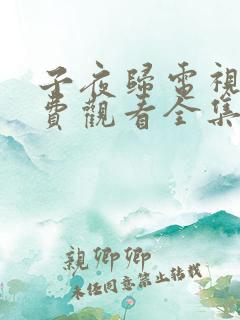 子夜歸電視
費觀看全集
親卿卿
未经同意禁止转载